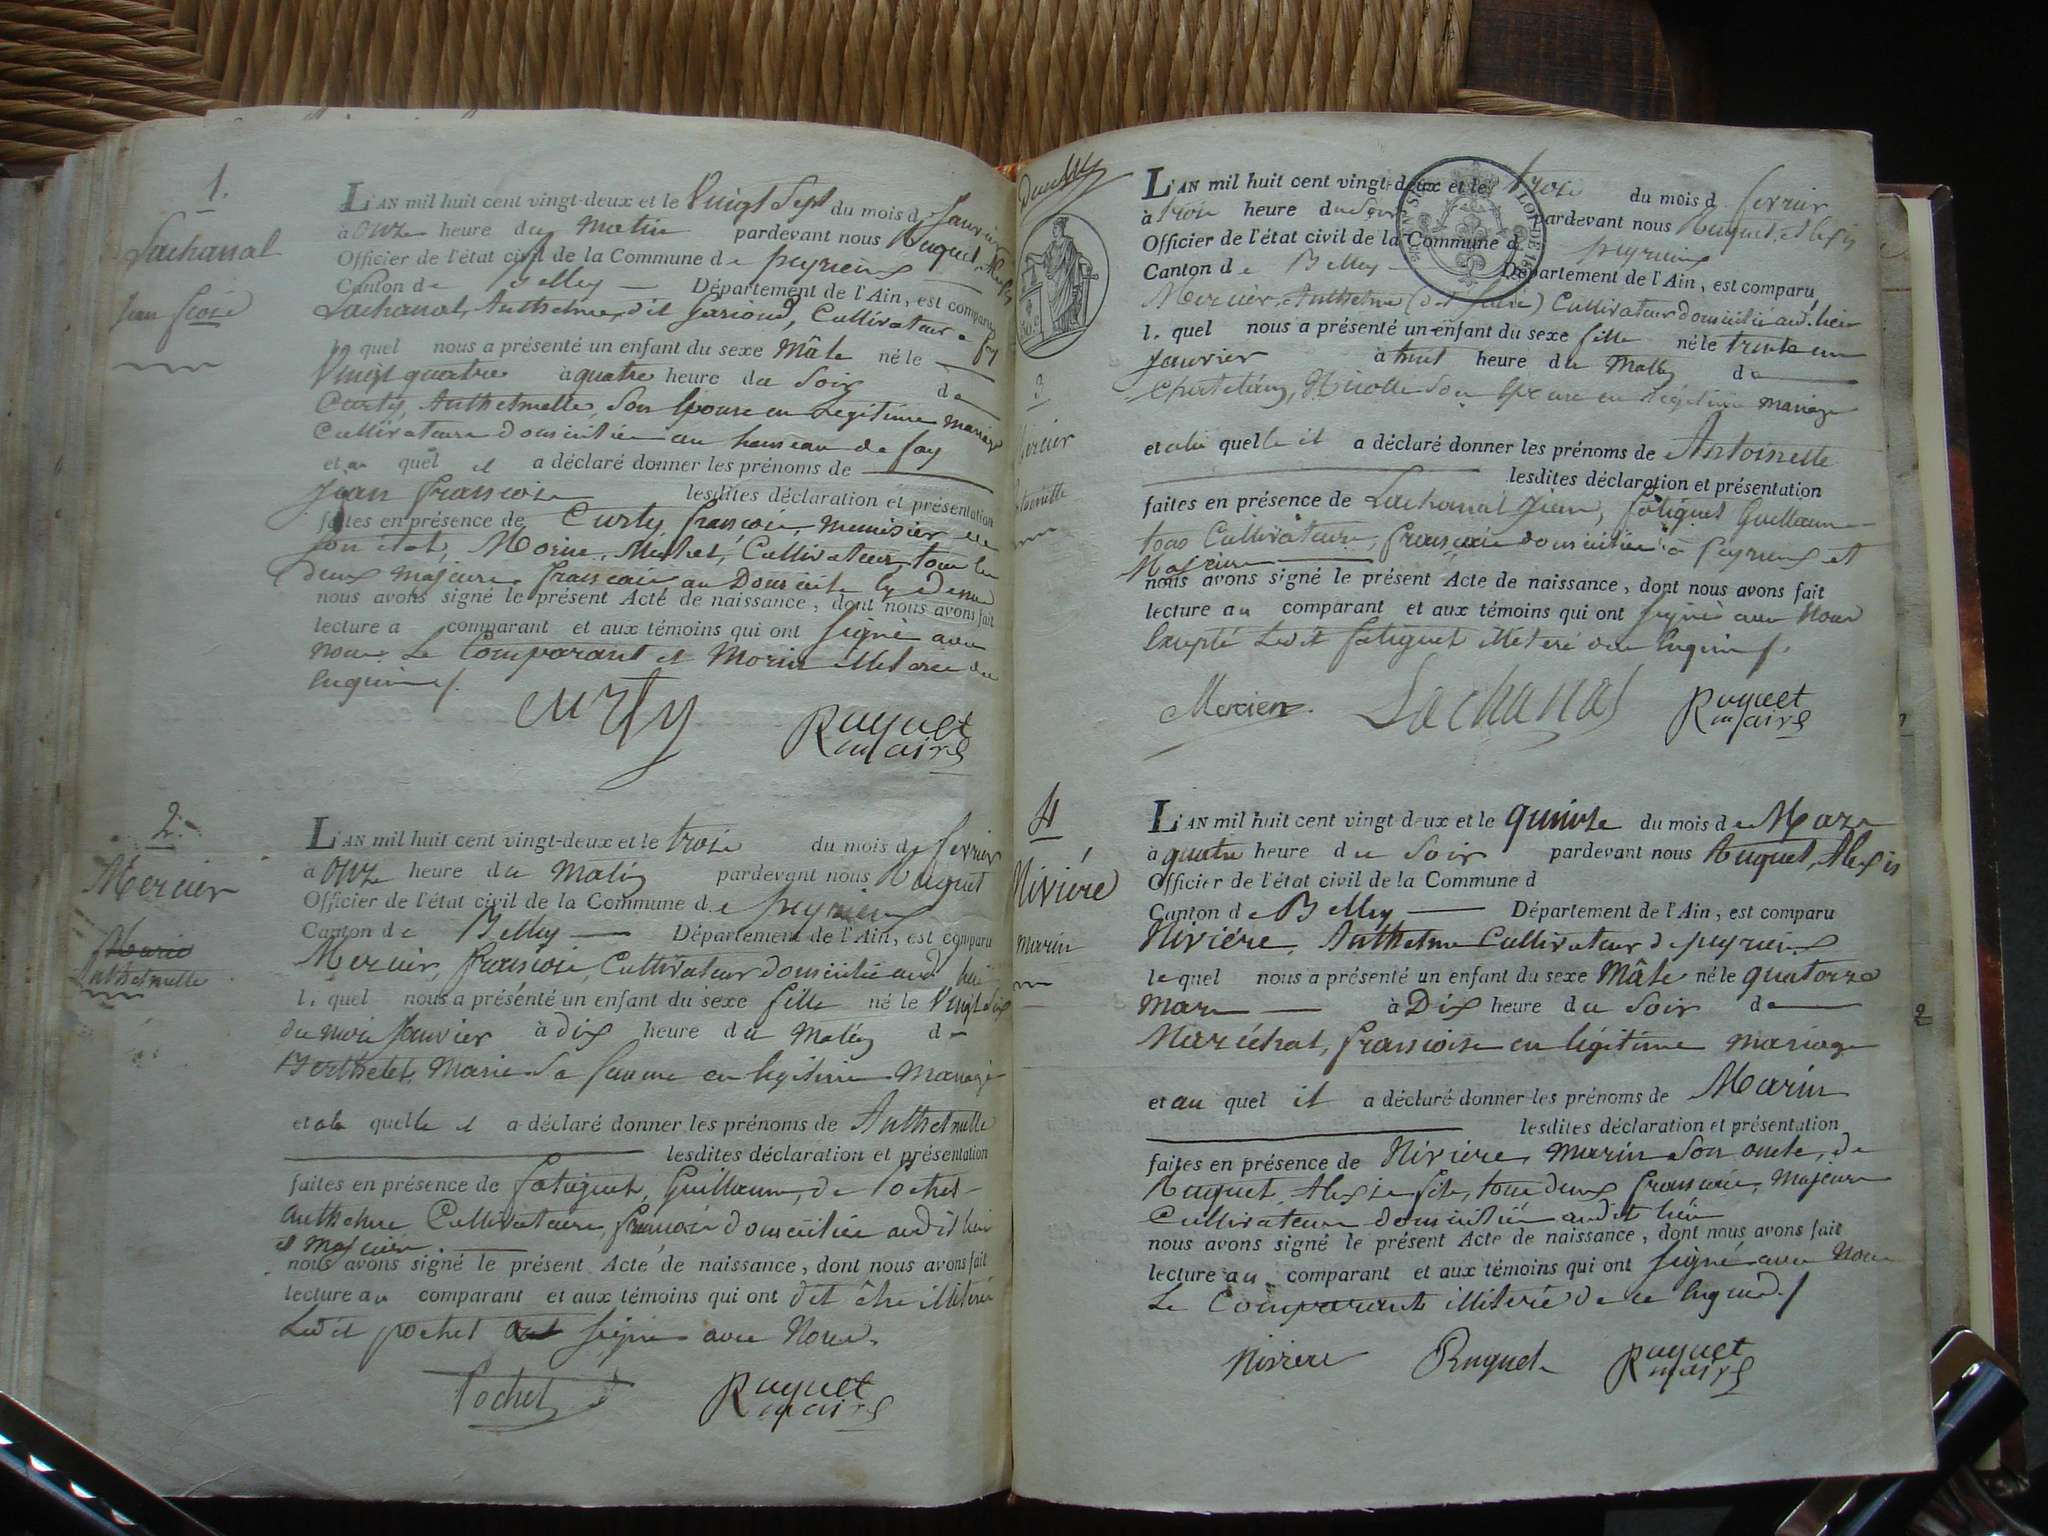 1.
Lachanal
Jean
L'AN mil huit cent vingt-deux et le Vingt Sept du mois de Janvier
à onze heure du Matin pardevant nous Ruquet, Alexis
Officier de l'état civil de la Commune de peyrieux
Canton de Belley Département de l'Ain, est comparu
Lachanal, Anthelme, dit Cultivateur a fay
le quel nous a présenté un enfant du sexe Mâle né le
Vingt quatre à quatre heure du Soir de
Curty, Anthelmelle, Son Epouse en Legitime mariage
Cultivateurs domiciliés au hameau de fay
et au quel il a déclaré donner les prénoms de
Jean françois lesdites déclaration et présentation
faites en présence de Curty françois, menuisier de
son état, Morin, Michel, Cultivateur, tous les
deux majeurs français au Domicile
nous avons signé le présent Acte de naissance, dont nous avons fait
lecture a comparant et aux témoins qui ont signé avec
nous Le Comparant et Morin illeteré de
enquis
curty Ruquet
maire
2.
Mercier
Marie
Anthelmelle
L'AN mil huit cent vingt-deux et le trois du mois de fevrier
à onze heure du Matin pardevant nous Ruquet
Officier de l'état civil de la Commune de peyrieux
Canton de Belley Département de l'Ain, est comparu
Mercier, françois, Cultivateur domicilié aud. lieu
l. quel nous a présenté un enfant du sexe fille né le Vingt Six
du mois Janvier à dix heure du Matin de
Berthelet, Marie Sa femme en legitime Mariage
et a la quelle il a déclaré donner les prénoms de Anthelmelle
lesdites déclaration et présentation
faites en présence de fatiguet, Guillaume, de Pochet
Anthelme Cultivateurs, français domiciliés audit lieu
et Majeurs
nous avons signé le présent Acte de naissance, dont nous avons fait
lecture au comparant et aux témoins qui ont dit être illiteré
Ledit pochet signé avec Nous.
Pochet Ruquet
maire
3
Mercier
Antoinette
L'AN mil huit cent vingt-deux et le trois du mois d fevrier
à trois heure du Soir pardevant nous Ruquet, Alexis
Officier de l'état civil de la Commune d peyrieux
Canton de Belley Département de l'Ain, est comparu
Mercier, Anthelme Cultivateur domicilié aud. lieu
l. quel nous a présenté un enfant du sexe fille né le trente un
Janvier à huit heure du Matin de
Chatelain, Nicolle Son Epouse en Légitime mariage
et a la quelle il a déclaré donner les prénoms de Antoinette
lesdites déclaration et présentation
faites en présence de Lachanal Jean, fatiguet Guillaume
tous Cultivateurs, français domiciliés à peyrieux et
Majeurs
nous avons signé le présent Acte de naissance, dont nous avons fait
lecture au comparant et aux témoins qui ont signé avec Nous
Excepté Ledit fatiguet illeteré de enquis
Mercier Lachanal Ruquet
maire
4
Nivière
marin
L'AN mil huit cent vingt-deux et le quinze du mois de Mars
à quatre heure du Soir pardevant nous Ruquet, Alexis
Officier de l'état civil de la Commune d
Canton de Belley Département de l'Ain, est comparu
Nivière, Anthelme Cultivateur de peyrieux
le quel nous a présenté un enfant du sexe Mâle né le quatorze
Mars à Dix heure du Soir de
Maréchal, françoise en légitime mariage
et au quel il a déclaré donner les prénoms de Marin
lesdites déclaration et présentation
faites en présence de Nivière, marin Son oncle, de
Ruquet, Alexis fils, tous deux français, majeurs
Cultivateurs domiciliés audit lieu
nous avons signé le présent Acte de naissance, dont nous avons fait
lecture au comparant et aux témoins qui ont signé avec Nous
Le Comparant illiteré de ce Enquis
Nivière Ruquet Ruquet
maire
2